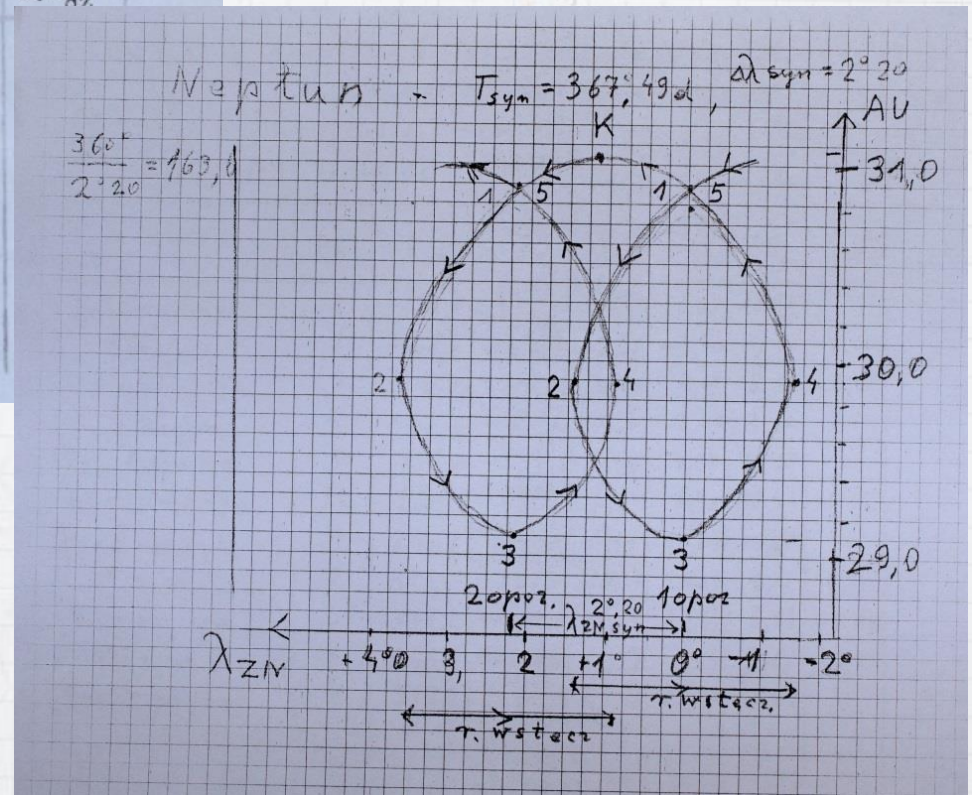 Neptun - Tsyn = 367,49d, Δλsyn = 2°20
360°
2°20 = 163,6
AU
K
31,0
1 5 1 5
30,0
2 2 4 4
29,0
3 3
2opoz. 1opoz
2°,20
λZN,syn
λZN +4° 3, 2 +1° 0° -1 -2°
r. wstecz.
r. wstecz